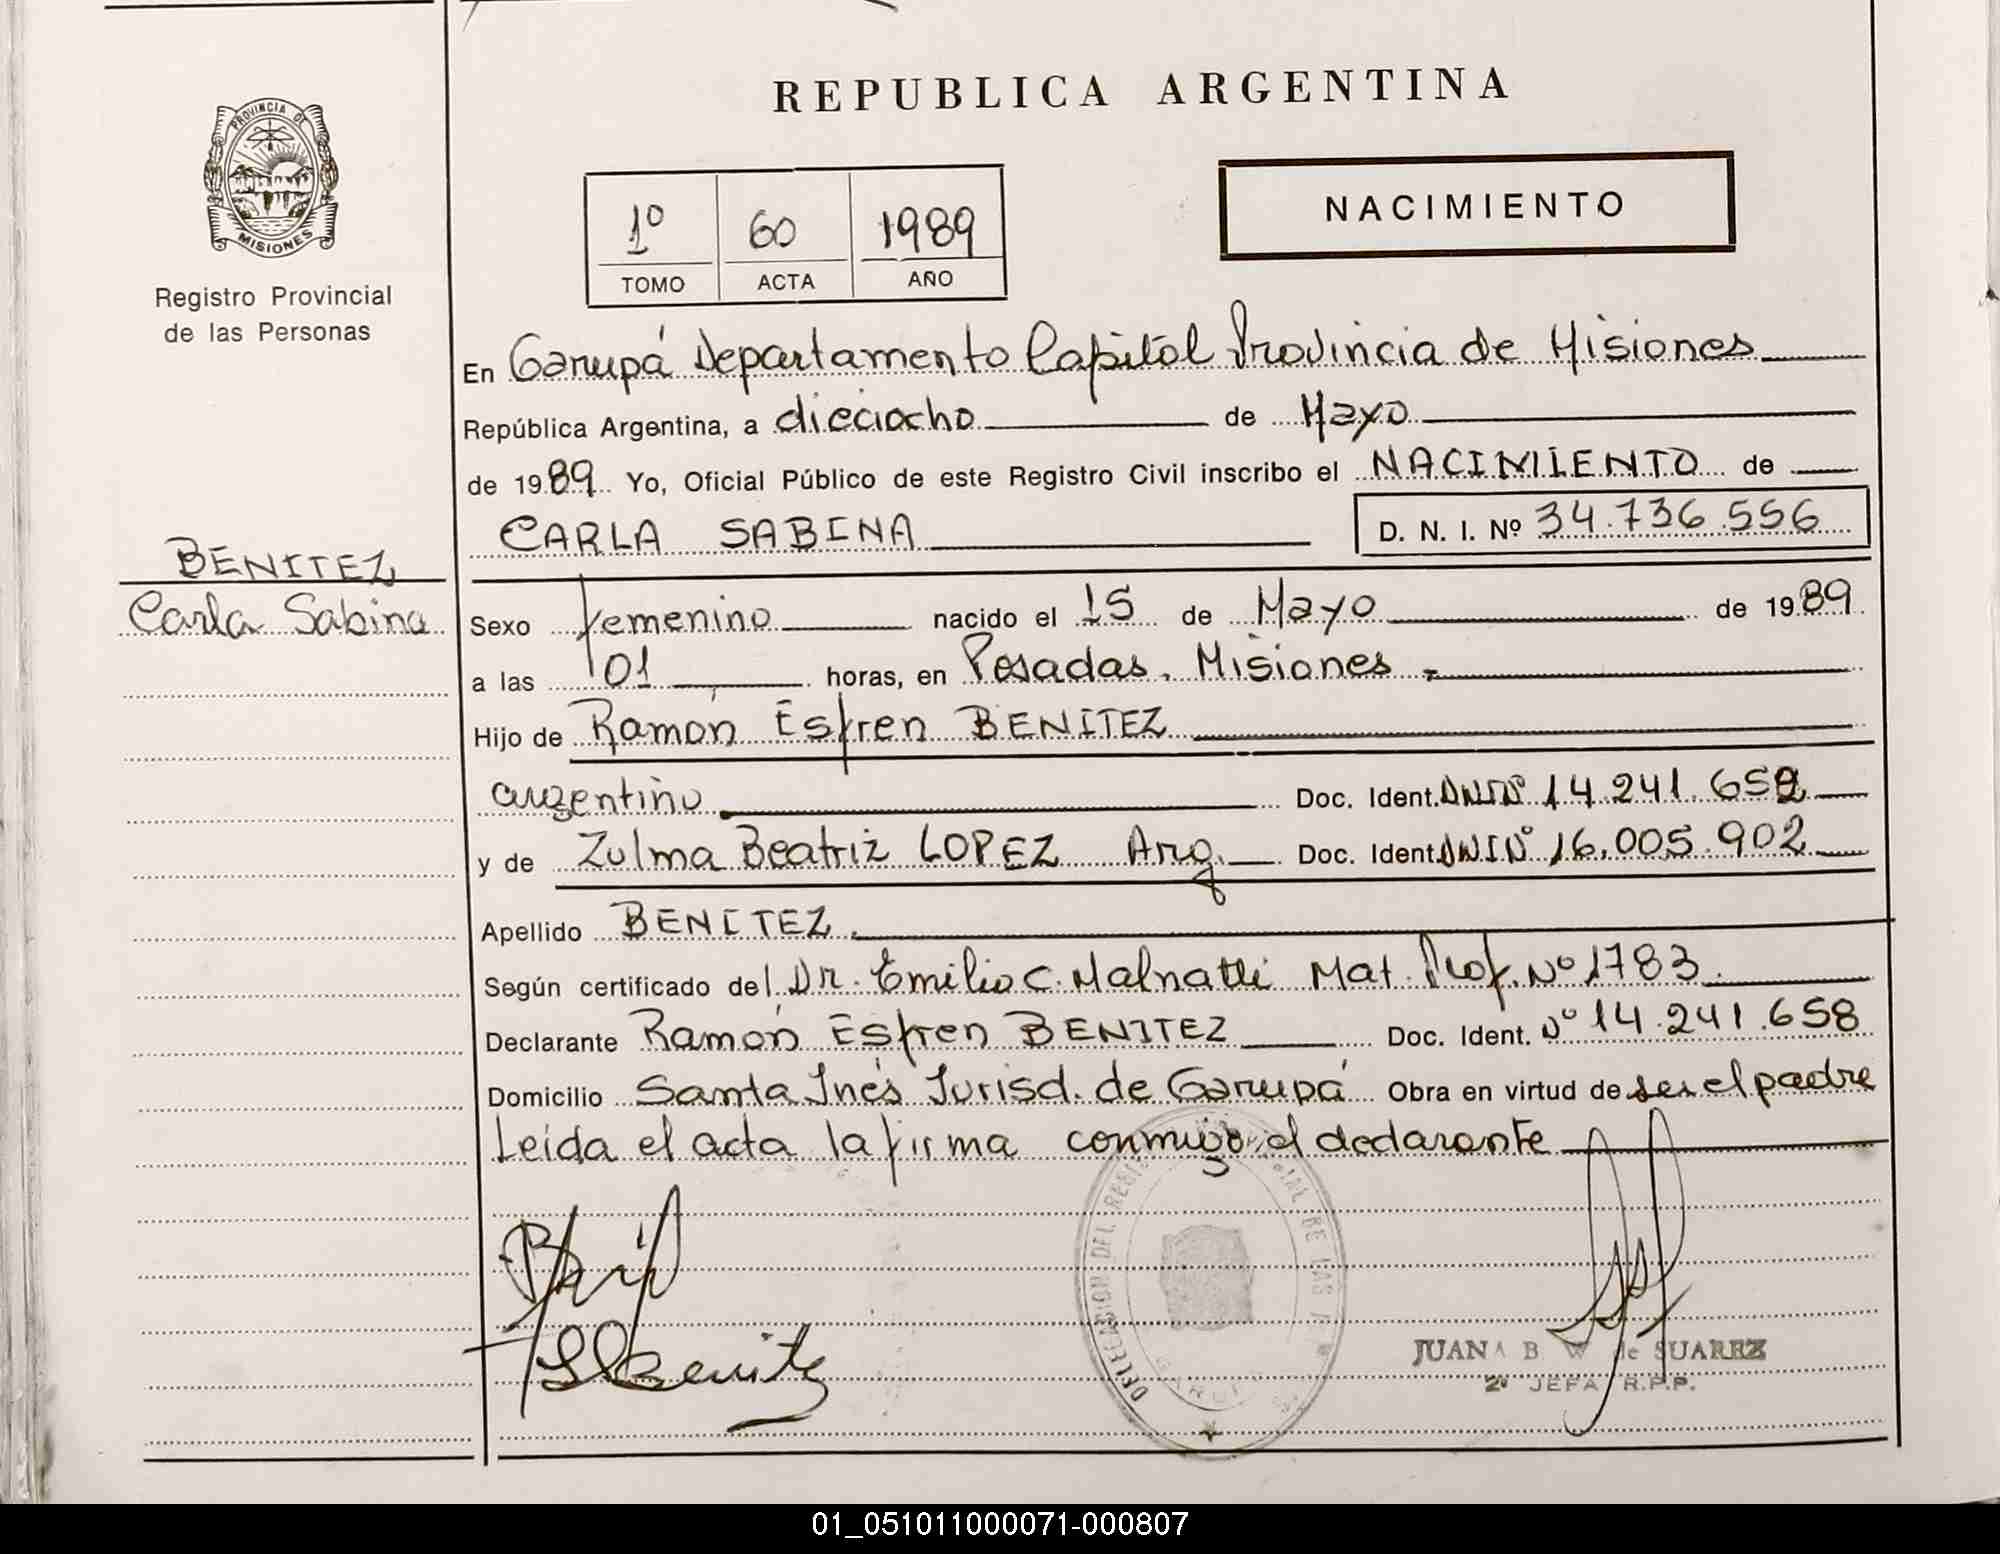 REPUBLICA ARGENTINA
PROVINCIA DE
MISIONES
Registro Provincial
de las Personas
1º 60 1989
TOMO ACTA AÑO
NACIMIENTO
En Garupá Departamento Capital Provincia de Misiones
República Argentina, a dieciocho de Mayo
de 1989 Yo, Oficial Público de este Registro Civil inscribo el NACIMIENTO de
CARLA SABINA D. N. I. Nº 34.736.556
BENITEZ
Carla Sabina
Sexo femenino nacido el 15 de Mayo de 1989
a las 01 horas, en Posadas, Misiones
Hijo de Ramón Esfren BENITEZ
argentino Doc. Ident. DNI Nº 14.241.658
y de Zulma Beatriz LOPEZ Arg. Doc. Ident. DNI Nº 16.005.902
Apellido BENITEZ
Según certificado del Dr. Emilio C. Malnatti Mat. Prof. Nº 1783
Declarante Ramón Esfren BENITEZ Doc. Ident. Nº 14.241.658
Domicilio Santa Inés Jurisd. de Garupá Obra en virtud de ser el padre
Leida el acta la firma conmigo el declarante
DELEGACION DEL REGISTRO PROVINCIAL DE LAS
GARUPA
JUANA B. W. de SUAREZ
2º JEFA R.P.P.
01_051011000071-000807